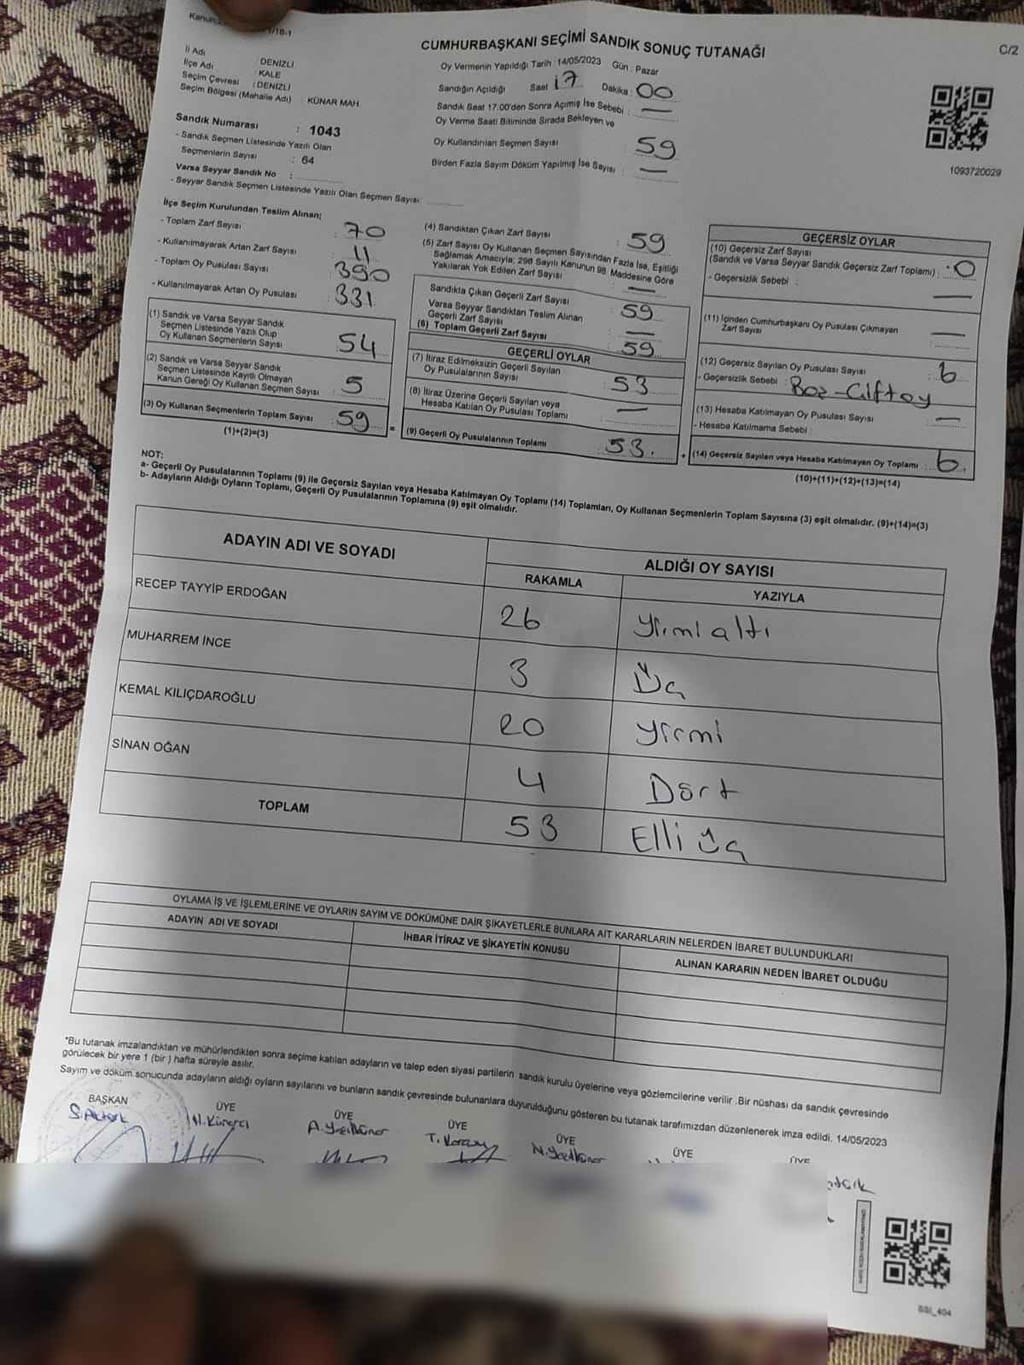 CUMHURBAŞKANI SEÇİMİ SANDIK SONUÇ TUTANAĞI
C/2
İl Adı DENİZLİ
İlçe Adı KALE
Seçim Çevresi : DENİZLİ
Seçim Bölgesi (Mahalle Adı) : KÜNAR MAH.
Sandık Numarası : 1043
- Sandık Seçmen Listesinde Yazılı Olan
Seçmenlerin Sayısı : 64
Varsa Seyyar Sandık No :
- Seyyar Sandık Seçmen Listesinde Yazılı Olan Seçmen Sayısı :
Oy Vermenin Yapıldığı Tarih : 14/05/2023 Gün : Pazar
Sandığın Açıldığı Saat 17 Dakika : 00
Sandık Saat 17.00'den Sonra Açımış İse Sebebi : —
Oy Verme Saati Bitiminde Sırada Bekleyen ve
Oy Kullandırılan Seçmen Sayısı 59
Birden Fazla Sayım Döküm Yapılmış İse Sayısı : —
1093720029
İlçe Seçim Kurulundan Teslim Alınan;
- Toplam Zarf Sayısı : 70
- Kullanılmayarak Artan Zarf Sayısı : 11
- Toplam Oy Pusulası Sayısı : 390
- Kullanılmayarak Artan Oy Pusulası : 331
(1) Sandık ve Varsa Seyyar Sandık
Seçmen Listesinde Yazılı Olup
Oy Kullanan Seçmenlerin Sayısı : 54
(2) Sandık ve Varsa Seyyar Sandık
Seçmen Listesinde Kayıtlı Olmayan
Kanun Gereği Oy Kullanan Seçmen Sayısı : 5
(3) Oy Kullanan Seçmenlerin Toplam Sayısı : 59
(1)+(2)=(3)
(4) Sandıktan Çıkan Zarf Sayısı : 59
(5) Zarf Sayısı Oy Kullanan Seçmen Sayısından Fazla İse, Eşitliği
Sağlamak Amacıyla; 298 Sayılı Kanunun 98. Maddesine Göre
Yakılarak Yok Edilen Zarf Sayısı : —
Sandıkta Çıkan Geçerli Zarf Sayısı : 59
Varsa Seyyar Sandıktan Teslim Alınan
Geçerli Zarf Sayısı : —
(6) Toplam Geçerli Zarf Sayısı : 59
GEÇERLİ OYLAR
(7) İtiraz Edilmeksizin Geçerli Sayılan
Oy Pusulalarının Sayısı : 53
(8) İtiraz Üzerine Geçerli Sayılan veya
Hesaba Katılan Oy Pusulası Toplamı : —
(9) Geçerli Oy Pusulalarının Toplamı : 53.
GEÇERSİZ OYLAR
(10) Geçersiz Zarf Sayısı
(Sandık ve Varsa Seyyar Sandık Geçersiz Zarf Toplamı) : 0
- Geçersizlik Sebebi : —
(11) İçinden Cumhurbaşkanı Oy Pusulası Çıkmayan
Zarf Sayısı —
(12) Geçersiz Sayılan Oy Pusulası Sayısı : 6
- Geçersizlik Sebebi : Boş-Çiftoy
(13) Hesaba Katılmayan Oy Pusulası Sayısı : —
- Hesaba Katılmama Sebebi :
(14) Geçersiz Sayılan veya Hesaba Katılmayan Oy Toplamı : 6.
(10)+(11)+(12)+(13)=(14)
NOT:
a- Geçerli Oy Pusulalarının Toplamı (9) ile Geçersiz Sayılan veya Hesaba Katılmayan Oy Toplamı (14) Toplamları, Oy Kullanan Seçmenlerin Toplam Sayısına (3) eşit olmalıdır. (9)+(14)=(3)
b- Adayların Aldığı Oyların Toplamı, Geçerli Oy Pusulalarının Toplamına (9) eşit olmalıdır.
ADAYIN ADI VE SOYADI ALDIĞI OY SAYISI
RAKAMLA YAZIYLA
RECEP TAYYİP ERDOĞAN 26 Yirmi altı
MUHARREM İNCE 3 Üç
KEMAL KILIÇDAROĞLU 20 Yirmi
SİNAN OĞAN 4 Dört
TOPLAM 53 Elli üç
OYLAMA İŞ VE İŞLEMLERİNE VE OYLARIN SAYIM VE DÖKÜMÜNE DAİR ŞİKAYETLERLE BUNLARA AİT KARARLARIN NELERDEN İBARET BULUNDUKLARI
ADAYIN ADI VE SOYADI İHBAR İTİRAZ VE ŞİKAYETİN KONUSU ALINAN KARARIN NEDEN İBARET OLDUĞU
*Bu tutanak imzalandıktan ve mühürlendikten sonra seçime katılan adayların ve talep eden siyasi partilerin sandık kurulu üyelerine veya gözlemcilerine verilir .Bir nüshası da sandık çevresinde
görülecek bir yere 1 (bir ) hafta süreyle asılır.
Sayım ve döküm sonucunda adayların aldığı oyların sayılarını ve bunların sandık çevresinde bulunanlara duyurulduğunu gösteren bu tutanak tarafımızdan düzenlenerek imza edildi. 14/05/2023
BAŞKAN ÜYE ÜYE ÜYE ÜYE ÜYE ÜYE